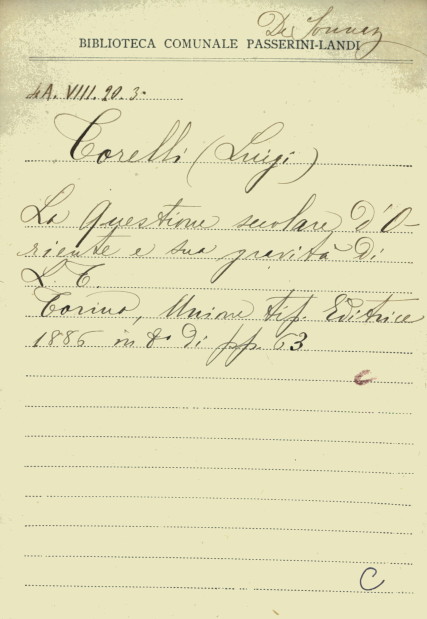 BIBLIOTECA COMUNALE PASSERINI-LANDI
4A. VIII. 20. 3.
Torelli (Luigi)
La Questione secolare d'O-
riente e sua gravità di
L. T.
Torino, Unione tip. Editrice
1886 in 8º di pp. 63
C
C